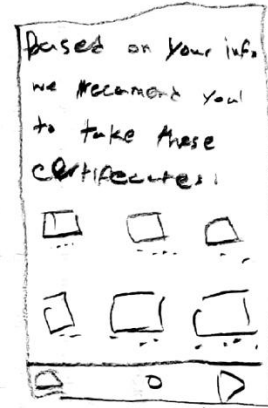 based on your info
we recomend you
to take these
certifecates: